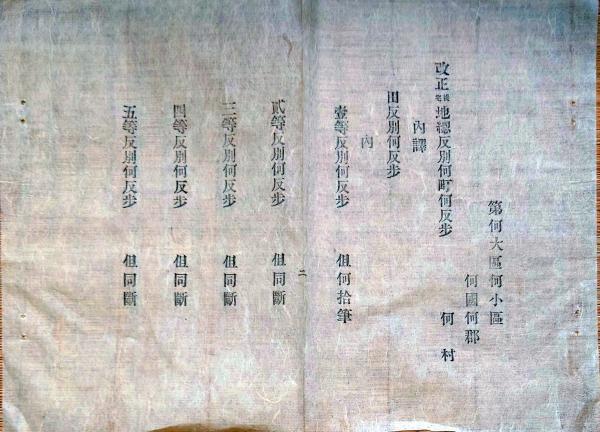 第何大區何小區
何國何郡
何村
改正耕宅地總反別何町何反步
內譯
田反別何反步
內
壹等反別何反步 但何拾筆
二
貳等反別何反步 但同斷
三等反別何反步 但同斷
四等反別何反步 但同斷
五等反別何反步 但同斷